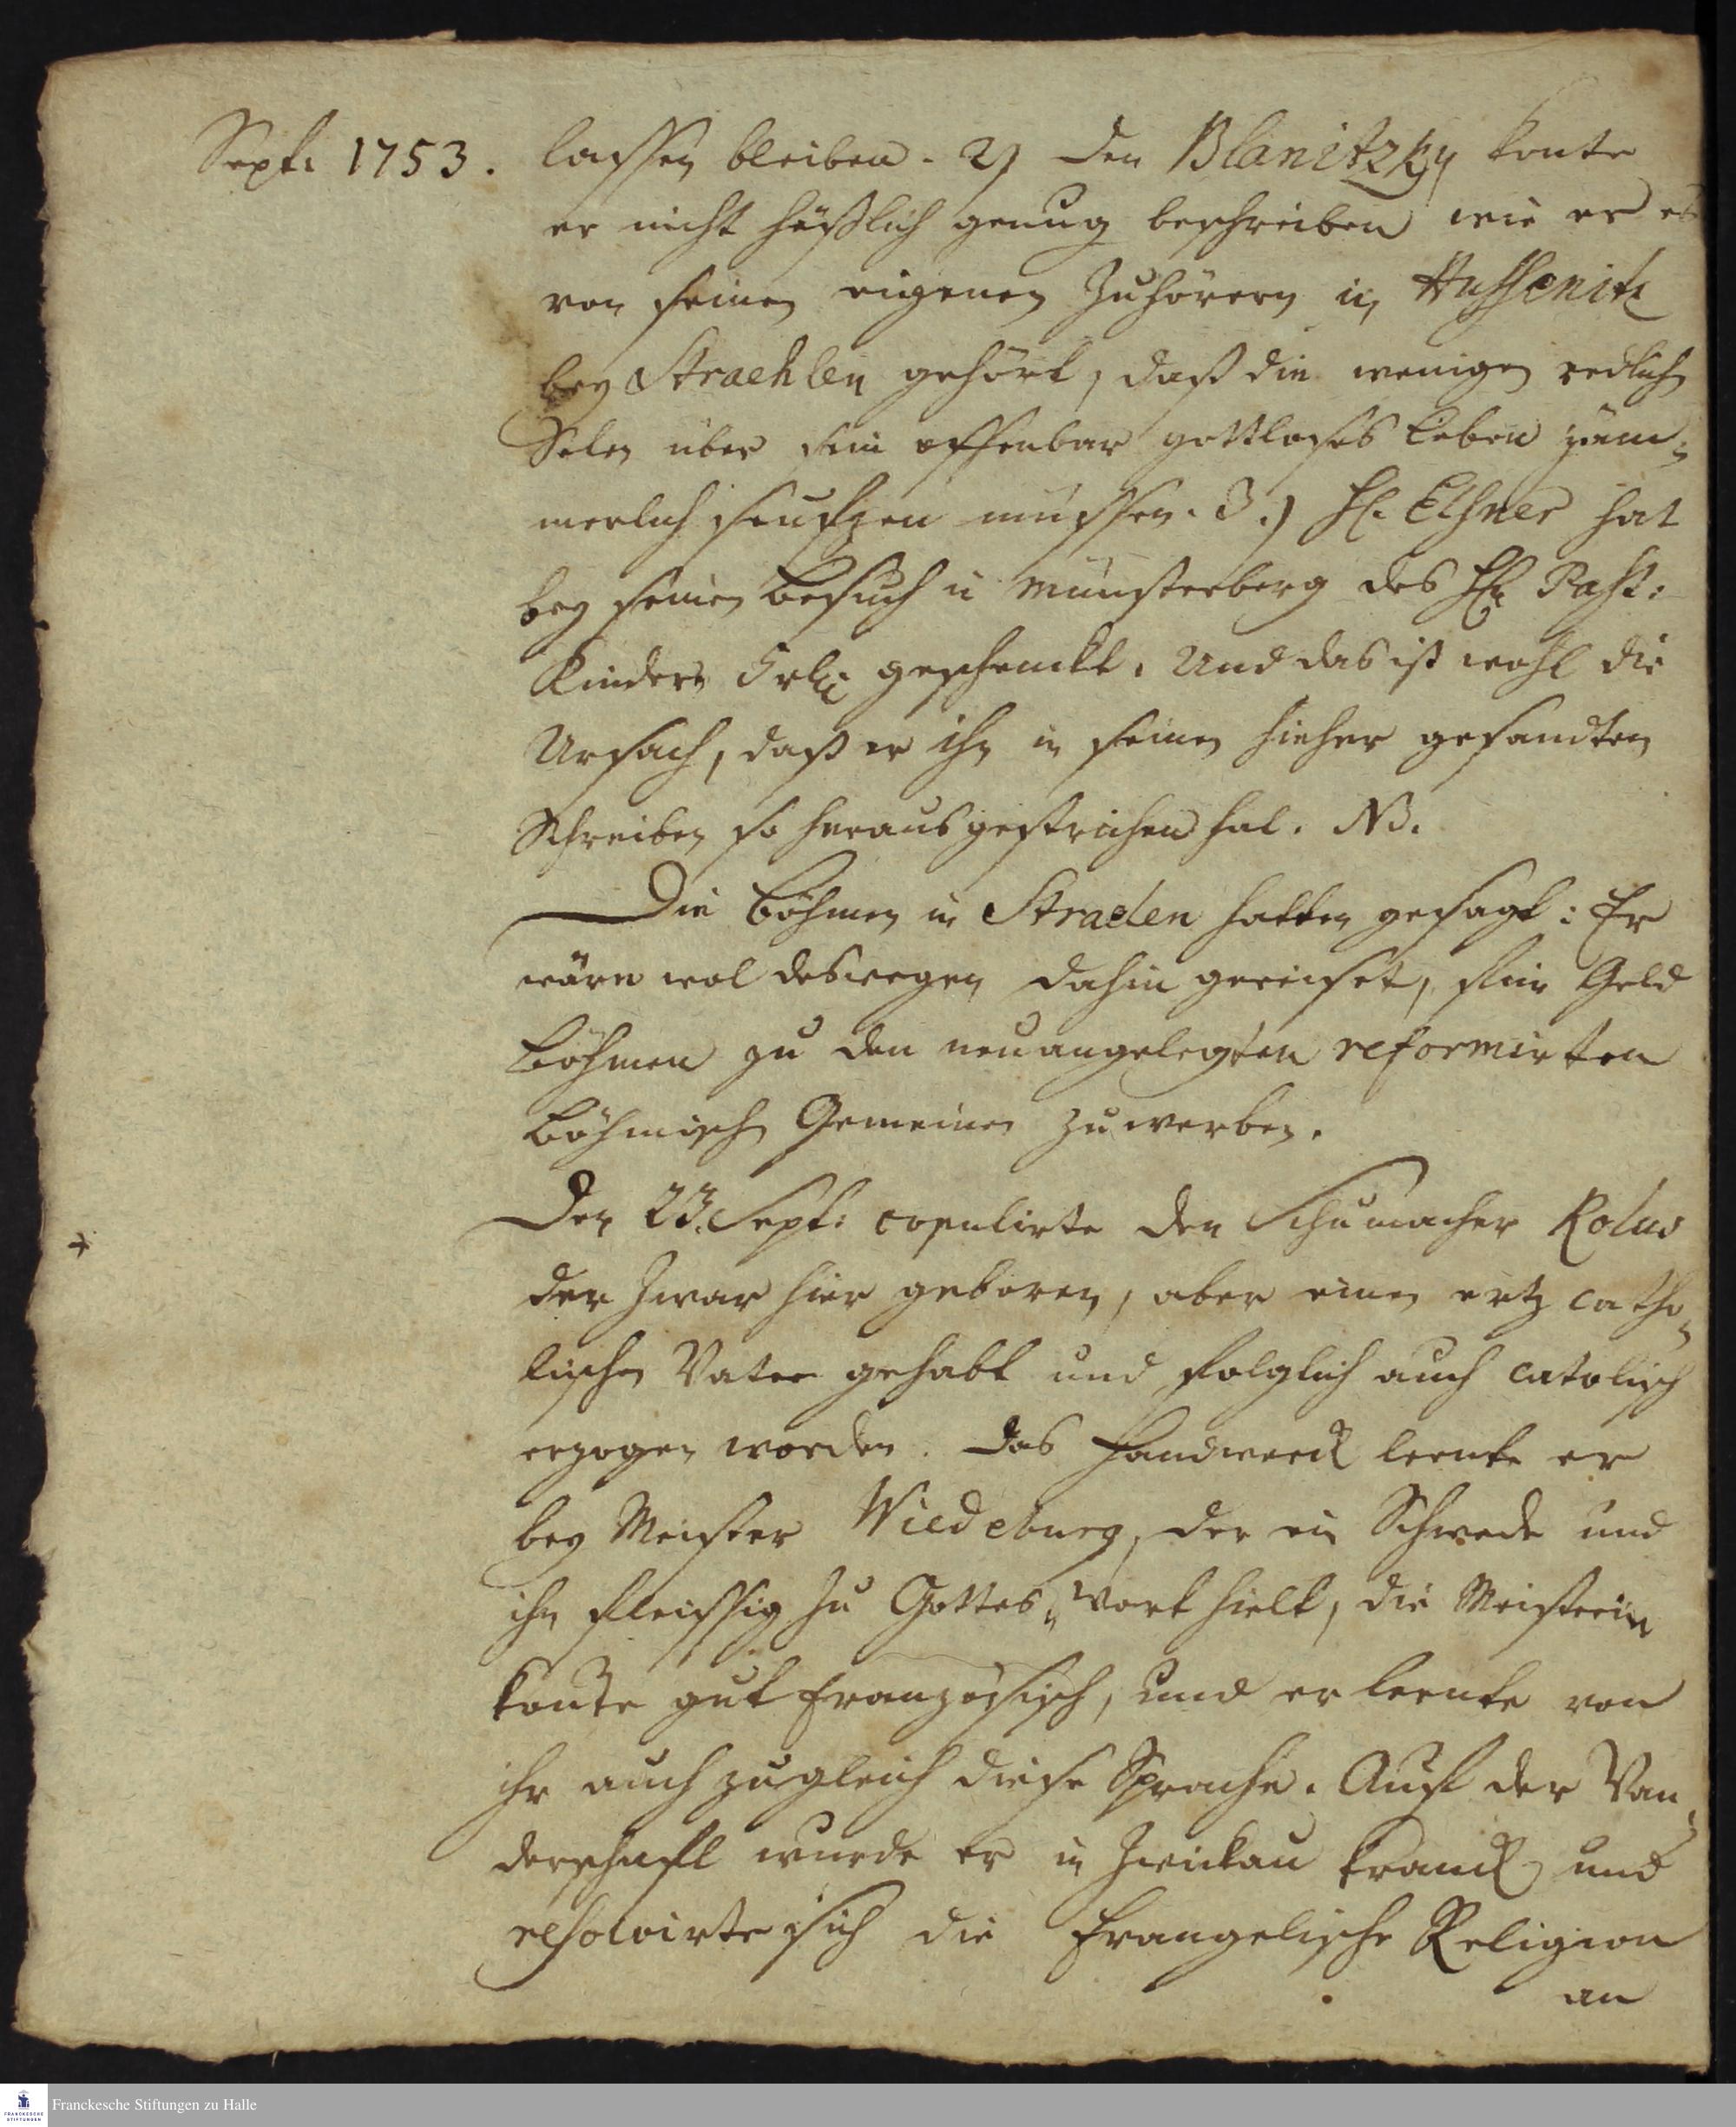 Sept: 1753. lassen bleiben. 2) den Blanitzky konte
er nicht häßlich genug beschreiben wie er es
von seinen eigenen Zuhörern in Hussenitz
bey Straehlen gehört, daß die wenigen redlichen
Selen über sein offenbar gottloses Leben jäm-
merlich seufzen müssen. 3.) H. Elsner hat
bey seinen Besuch in Münsterberg des Hn Past:
Kindern geschenckt. Und das ist wohl die
Ursach, daß er ihn in seinen hieher gesandten
Schreiben so herausgestrichen hat. NB.
Die Böhmen in Straelen hatten gesagt: Er
wäre wol deswegen dahin gereiset, für Geld
Böhmen zu den neuangelegten reformirten
Böhmisch Gemeinen zu werben.
Den 23. Sept: copulirte den Schumacher Kolas
der zwar hier geboren, aber einen ertz catho-
lischen Vater gehabt und folglich auch catolisch
erzogen worden. Das Handwerck lernte er
bey Meister Wiedeburg, der ein Schwede und
ihn fleissig zu Gottes-Wort hielt, die Meisterin
konte gut Französisch, und er lernte von
ihr auch zugleich diese Sprache. Auf der Wan-
derschaft wurde er in Zwickau kranck und
resolvirte sich die Evangelische Religion
an
Franckesche Stiftungen zu Halle